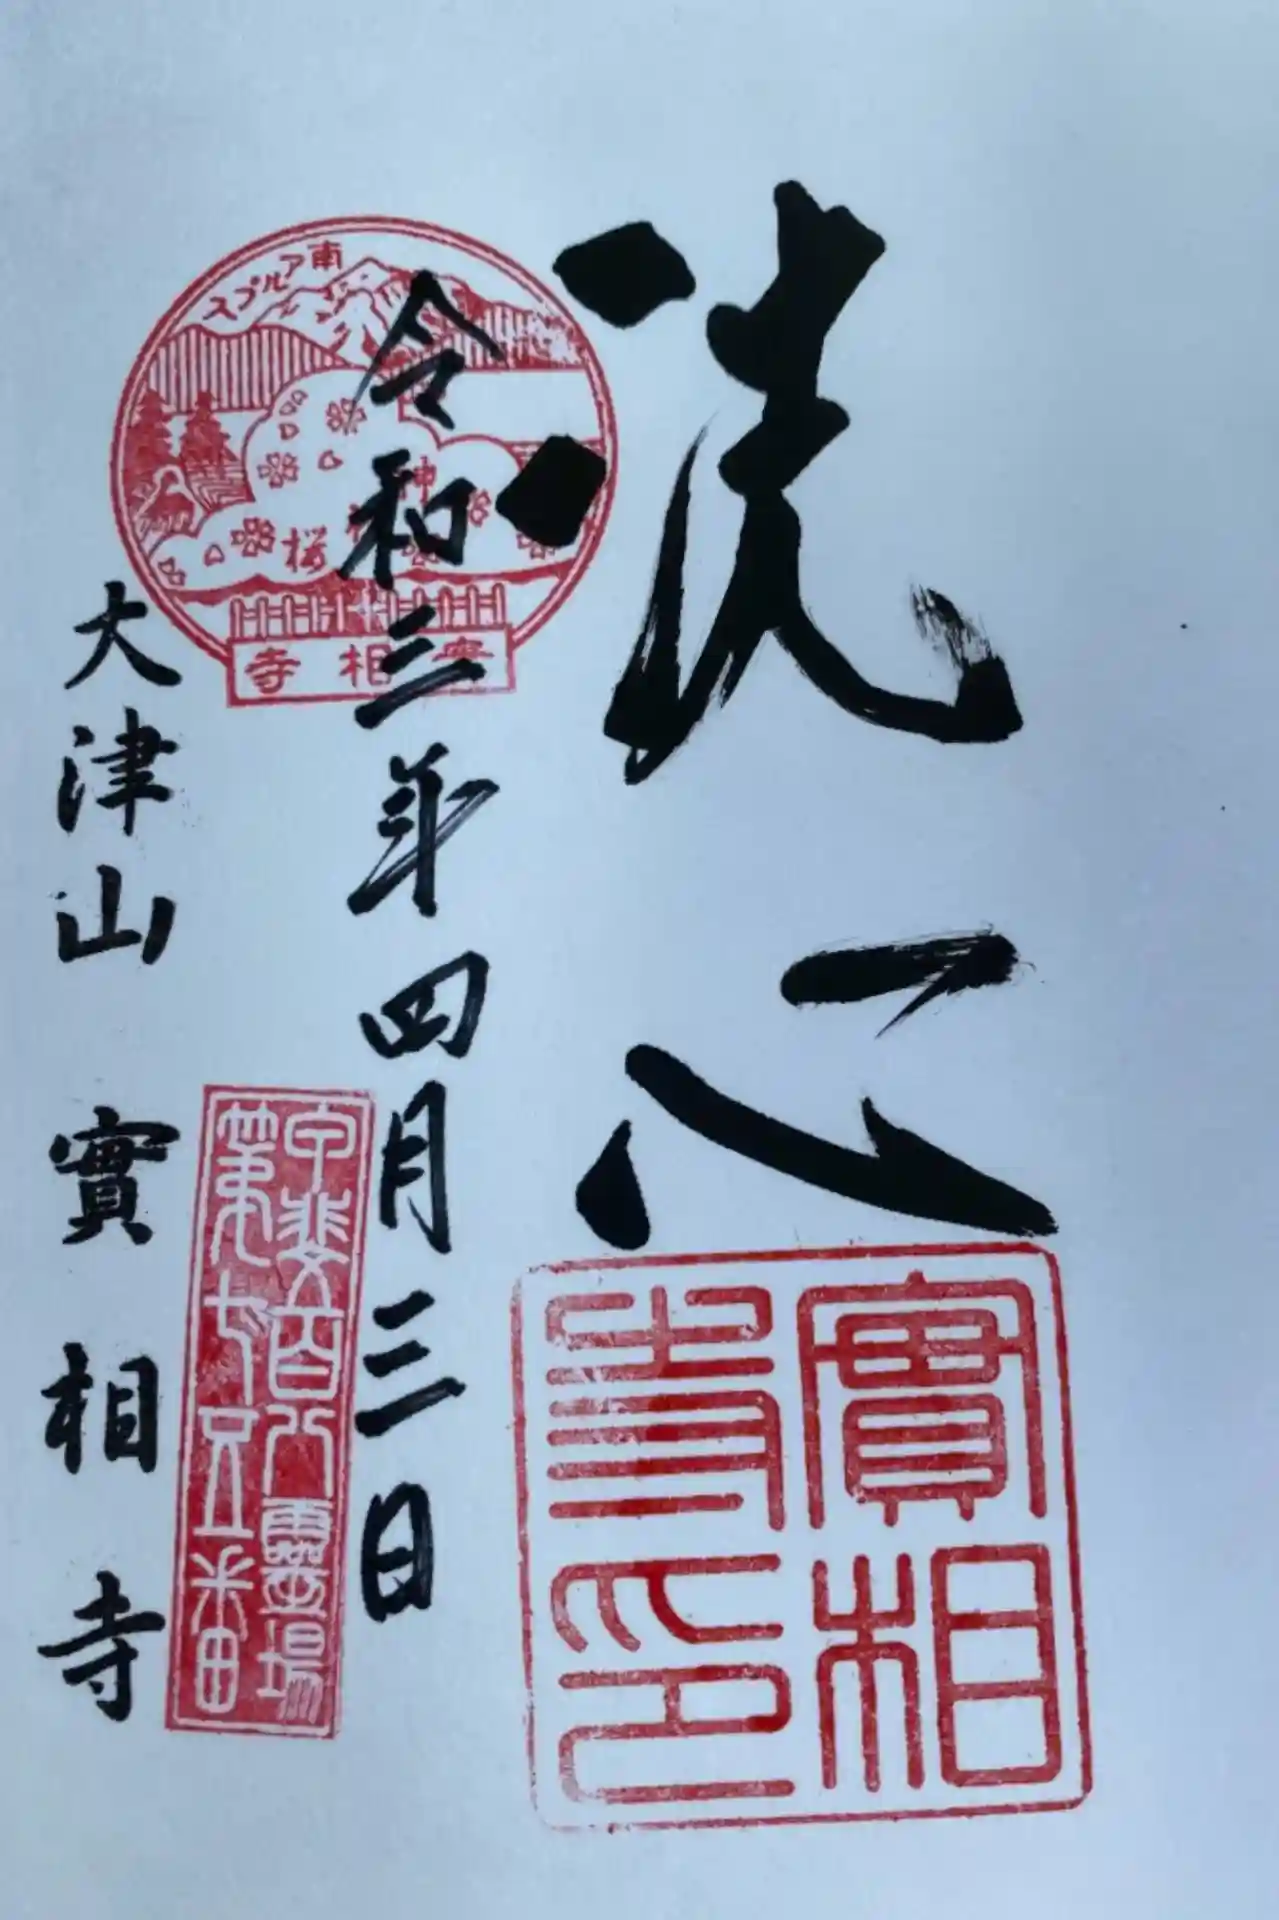 洗心
實相寺印
南アルプス
神代桜
實相寺
令和三年四月三日
甲斐百八靈場
第七十五番
大津山 實相寺